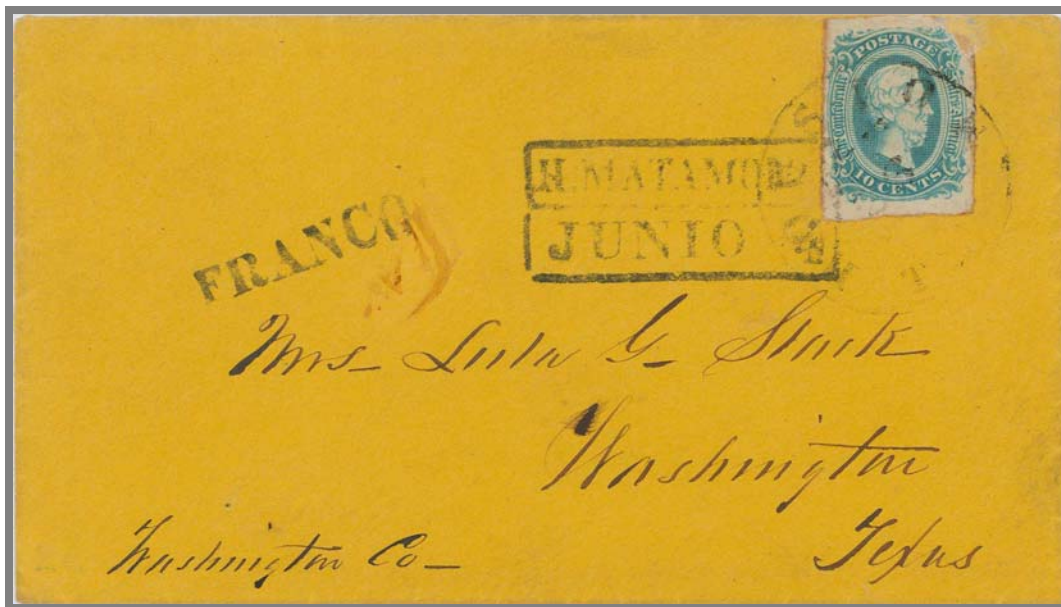 POSTAGE
The Confederate States of America
10 CENTS
H. MATAMO
JUNIO
FRANCO
Mrs Lula G Stark
Washington
Washington Co
Texas